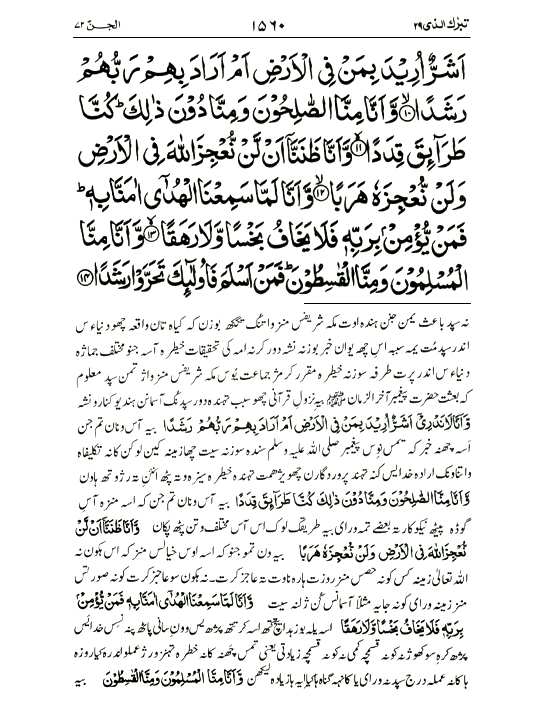 تبٰرك الذی ۲۹ ۱۵۶۰ الجــنّ ۷۲
اَشَرٌّ اُرِیْدَ بِمَنْ فِی الْاَرْضِ اَمْ اَرَادَ بِهِمْ رَبُّهُمْ
رَشَدًاۙ۝۱۰ وَّاَنَّا مِنَّا الصّٰلِحُوْنَ وَمِنَّا دُوْنَ ذٰلِكَؕ كُنَّا
طَرَآىِٕقَ قِدَدًاۙ۝۱۱ وَّاَنَّا ظَنَنَّاۤ اَنْ لَّنْ نُّعْجِزَ اللّٰهَ فِی الْاَرْضِ
وَلَنْ نُّعْجِزَهٗ هَرَبًاۙ۝۱۲ وَّاَنَّا لَمَّا سَمِعْنَا الْهُدٰۤی اٰمَنَّا بِهٖؕ
فَمَنْ یُّؤْمِنْۢ بِرَبِّهٖ فَلَا یَخَافُ بَخْسًا وَّلَا رَهَقًاۙ۝۱۳ وَّاَنَّا مِنَّا
الْمُسْلِمُوْنَ وَمِنَّا الْقٰسِطُوْنَؕ فَمَنْ اَسْلَمَ فَاُولٰٓىِٕكَ تَحَرَّوْا رَشَدًا۝۱۴
نہ سپد باعث یمن جن ہندہ اوت مکہ شریفس منز واتنگ بوزن کہ کیاہ تان واقعہ چھو دنیاءس
اندر سپدمت یمہ سببہ اس چھ یوان خبر بوزنہ نشہ دور کرنہ امہ کی تحقیقات خیطرہ آسہ جنو مختلف جماژہ
دنیاءس اندر پرت طرفہ سوزنہ خیطرہ مقرر کرمژ جماعت یوس مکہ شریفس منز واژ تمن سپد معلوم
کہ بعثت حضرت پیغمبر آخر الزمان ﷺ بیہ نزول قرآنی چھو سبب تہندہ دور سپدنگ آسمانن ہند یو کنارو نشہ
وَّاَنَّا لَا نَدْرِیْۤ اَشَرٌّ اُرِیْدَ بِمَنْ فِی الْاَرْضِ اَمْ اَرَادَ بِهِمْ رَبُّهُمْ رَشَدًا بیہ آس ونان تم جن
اسہ چھنہ خبر کہ تمس نوس پیغمبر صلی اللہ علیہ وسلم سندہ سوزنہ سیت چھا زمینہ کین لوکن کانہ تکلیفاہ
واتناونک ارادہ خدایس کنہ تہند پروردگارن چھو یژھمت تہندہ خیطرہ سیزہ وتہ پٹھ انُن تہ رژوتھ ہاون
وَاَنَّا مِنَّا الصّٰلِحُوْنَ وَمِنَّا دُوْنَ ذٰلِكَ كُنَّا طَرَآىِٕقَ قِدَدًا بیہ آس ونان تم جن کہ اسہ منزہ آس
گوڈہ پیٹھے نیکوکار تہ بعضے تمہ ورای بیہ طریقک لوک اس آس مختلف وتن پٹھ پکان وَّاَنَّا ظَنَنَّاۤ اَنْ لَّنْ
نُّعْجِزَ اللّٰهَ فِی الْاَرْضِ وَلَنْ نُّعْجِزَهٗ هَرَبًا بیہ ون تمو جنو کہ اسہ اوس خیالس منز کہ اس ہکون نہ
اللہ تعالیٰ زمینہ کس کونہ حصس منز روزت ہارہ ناوت تہ عاجز کرت۔ نہ ہکون سو عاجز کرت کونہ صورتس
منز زمینہ ورای کونہ جایہ مثلاً آسمانس کن ژلنہ سیت وَّاَنَّا لَمَّا سَمِعْنَا الْهُدٰۤی اٰمَنَّا بِهٖؕ فَمَنْ یُّؤْمِنْۢ
بِرَبِّهٖ فَلَا یَخَافُ بَخْسًا وَّلَا رَهَقًا اسہ یلہ بوز ہدایتھ اسہ کر تتھ پژھ یس وون سانی پاٹھ پننہ نس خدایس
پژھ کرہ سو کھوژنہ کونہ قسمچہ کمی نہ کونہ قسمچہ زیادتی یعنی تمس چھنہ کانہ خطرہ تہنزو رژو عملو اندرہ کیا روزہ
ہا کانہ عملہ درج سپدنہ ورای یا کانہہ گناہ ہا کیا ایہ ہا زیادہ لیکھن وَاَنَّا مِنَّا الْمُسْلِمُوْنَ وَمِنَّا الْقٰسِطُوْنَ بیہ